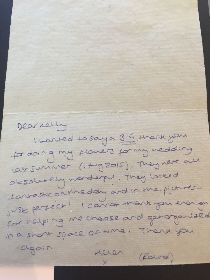 Dear Kelly
I wanted to say a BIG thank you
for doing my flowers for my wedding
last summer (1 Aug 2015). They were all
absolutely wonderful. They looked
fantastic on the day and in the pictures
just perfect! I cannot thank you enough
for helping me choose and get organised
in a short space of time. Thank you
again.
x